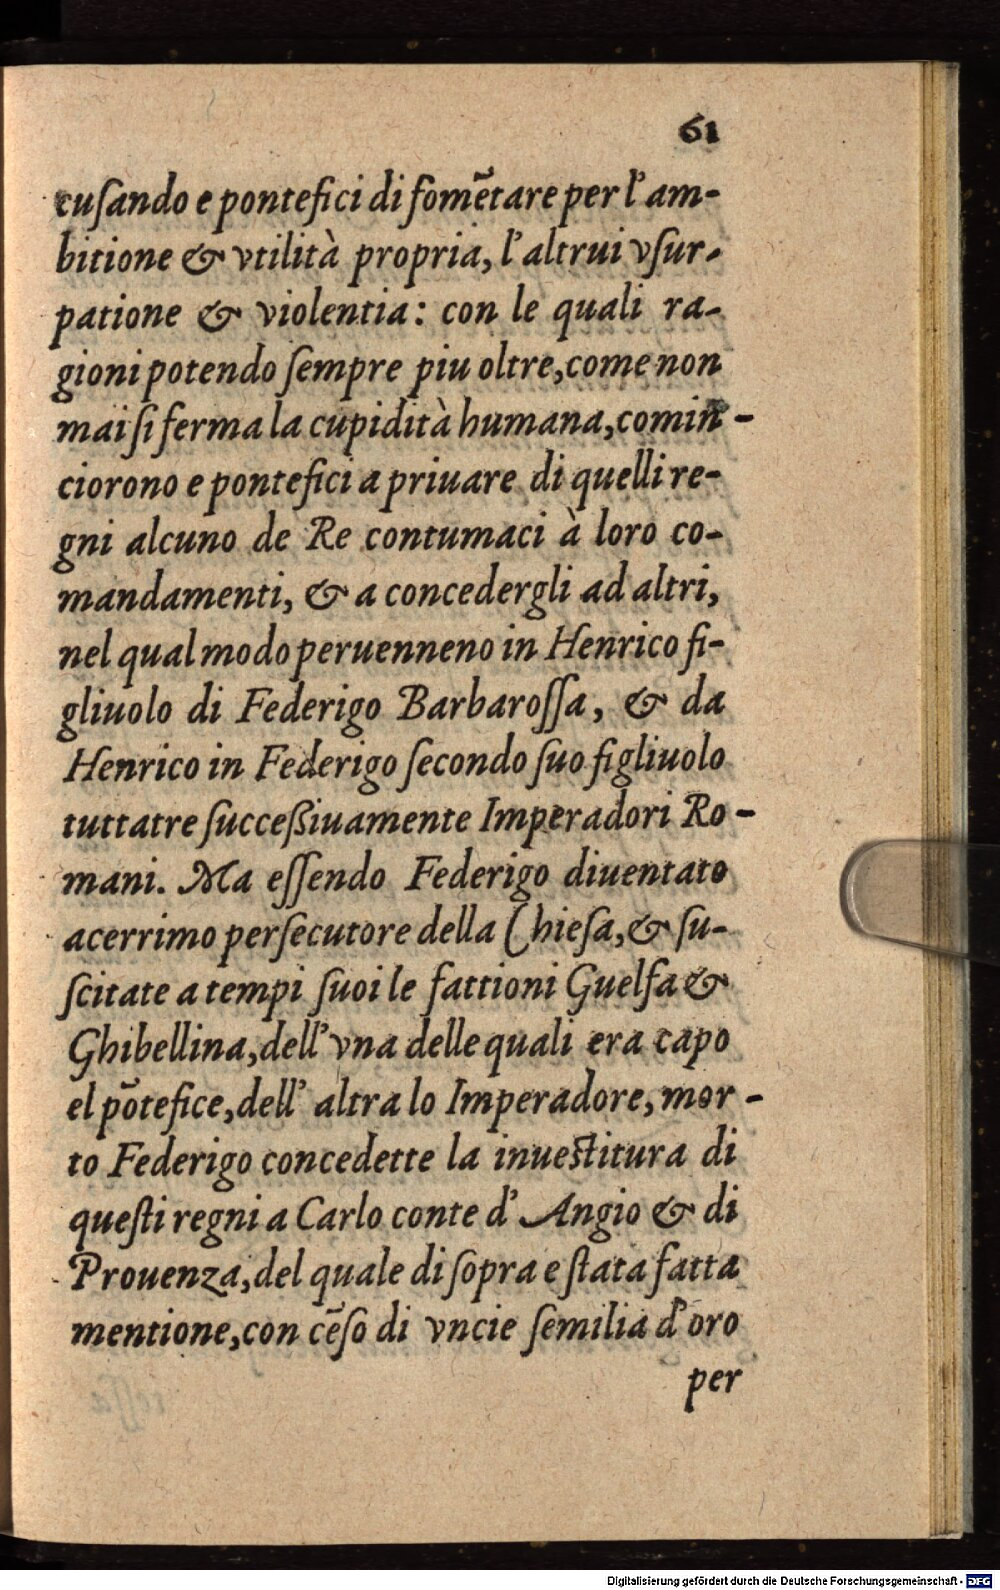 61
cusando e pontefici di fomẽtare per l'am-
bitione & vtilità propria, l'altrui vsur-
patione & violentia: con le quali ra-
gioni potendo sempre piu oltre, come non
mai si ferma la cupidità humana, comin-
ciorono e pontefici a priuare di quelli re-
gni alcuno de Re contumaci à loro co-
mandamenti, & a concedergli ad altri,
nel qual modo peruenneno in Henrico fi-
gliuolo di Federigo Barbarossa, & da
Henrico in Federigo secondo suo figliuolo
tuttatre successiuamente Imperadori Ro-
mani. Ma essendo Federigo diuentato
acerrimo persecutore della Chiesa, & su-
scitate a tempi suoi le fattioni Guelfa &
Ghibellina, dell'vna delle quali era capo
el põtefice, dell' altra lo Imperadore, mor-
to Federigo concedette la inuestitura di
questi regni a Carlo conte d' Angio & di
Prouenza, del quale di sopra e stata fatta
mentione, con cẽso di vncie semilia d'oro
per
Digitalisierung gefördert durch die Deutsche Forschungsgemeinschaft - DFG